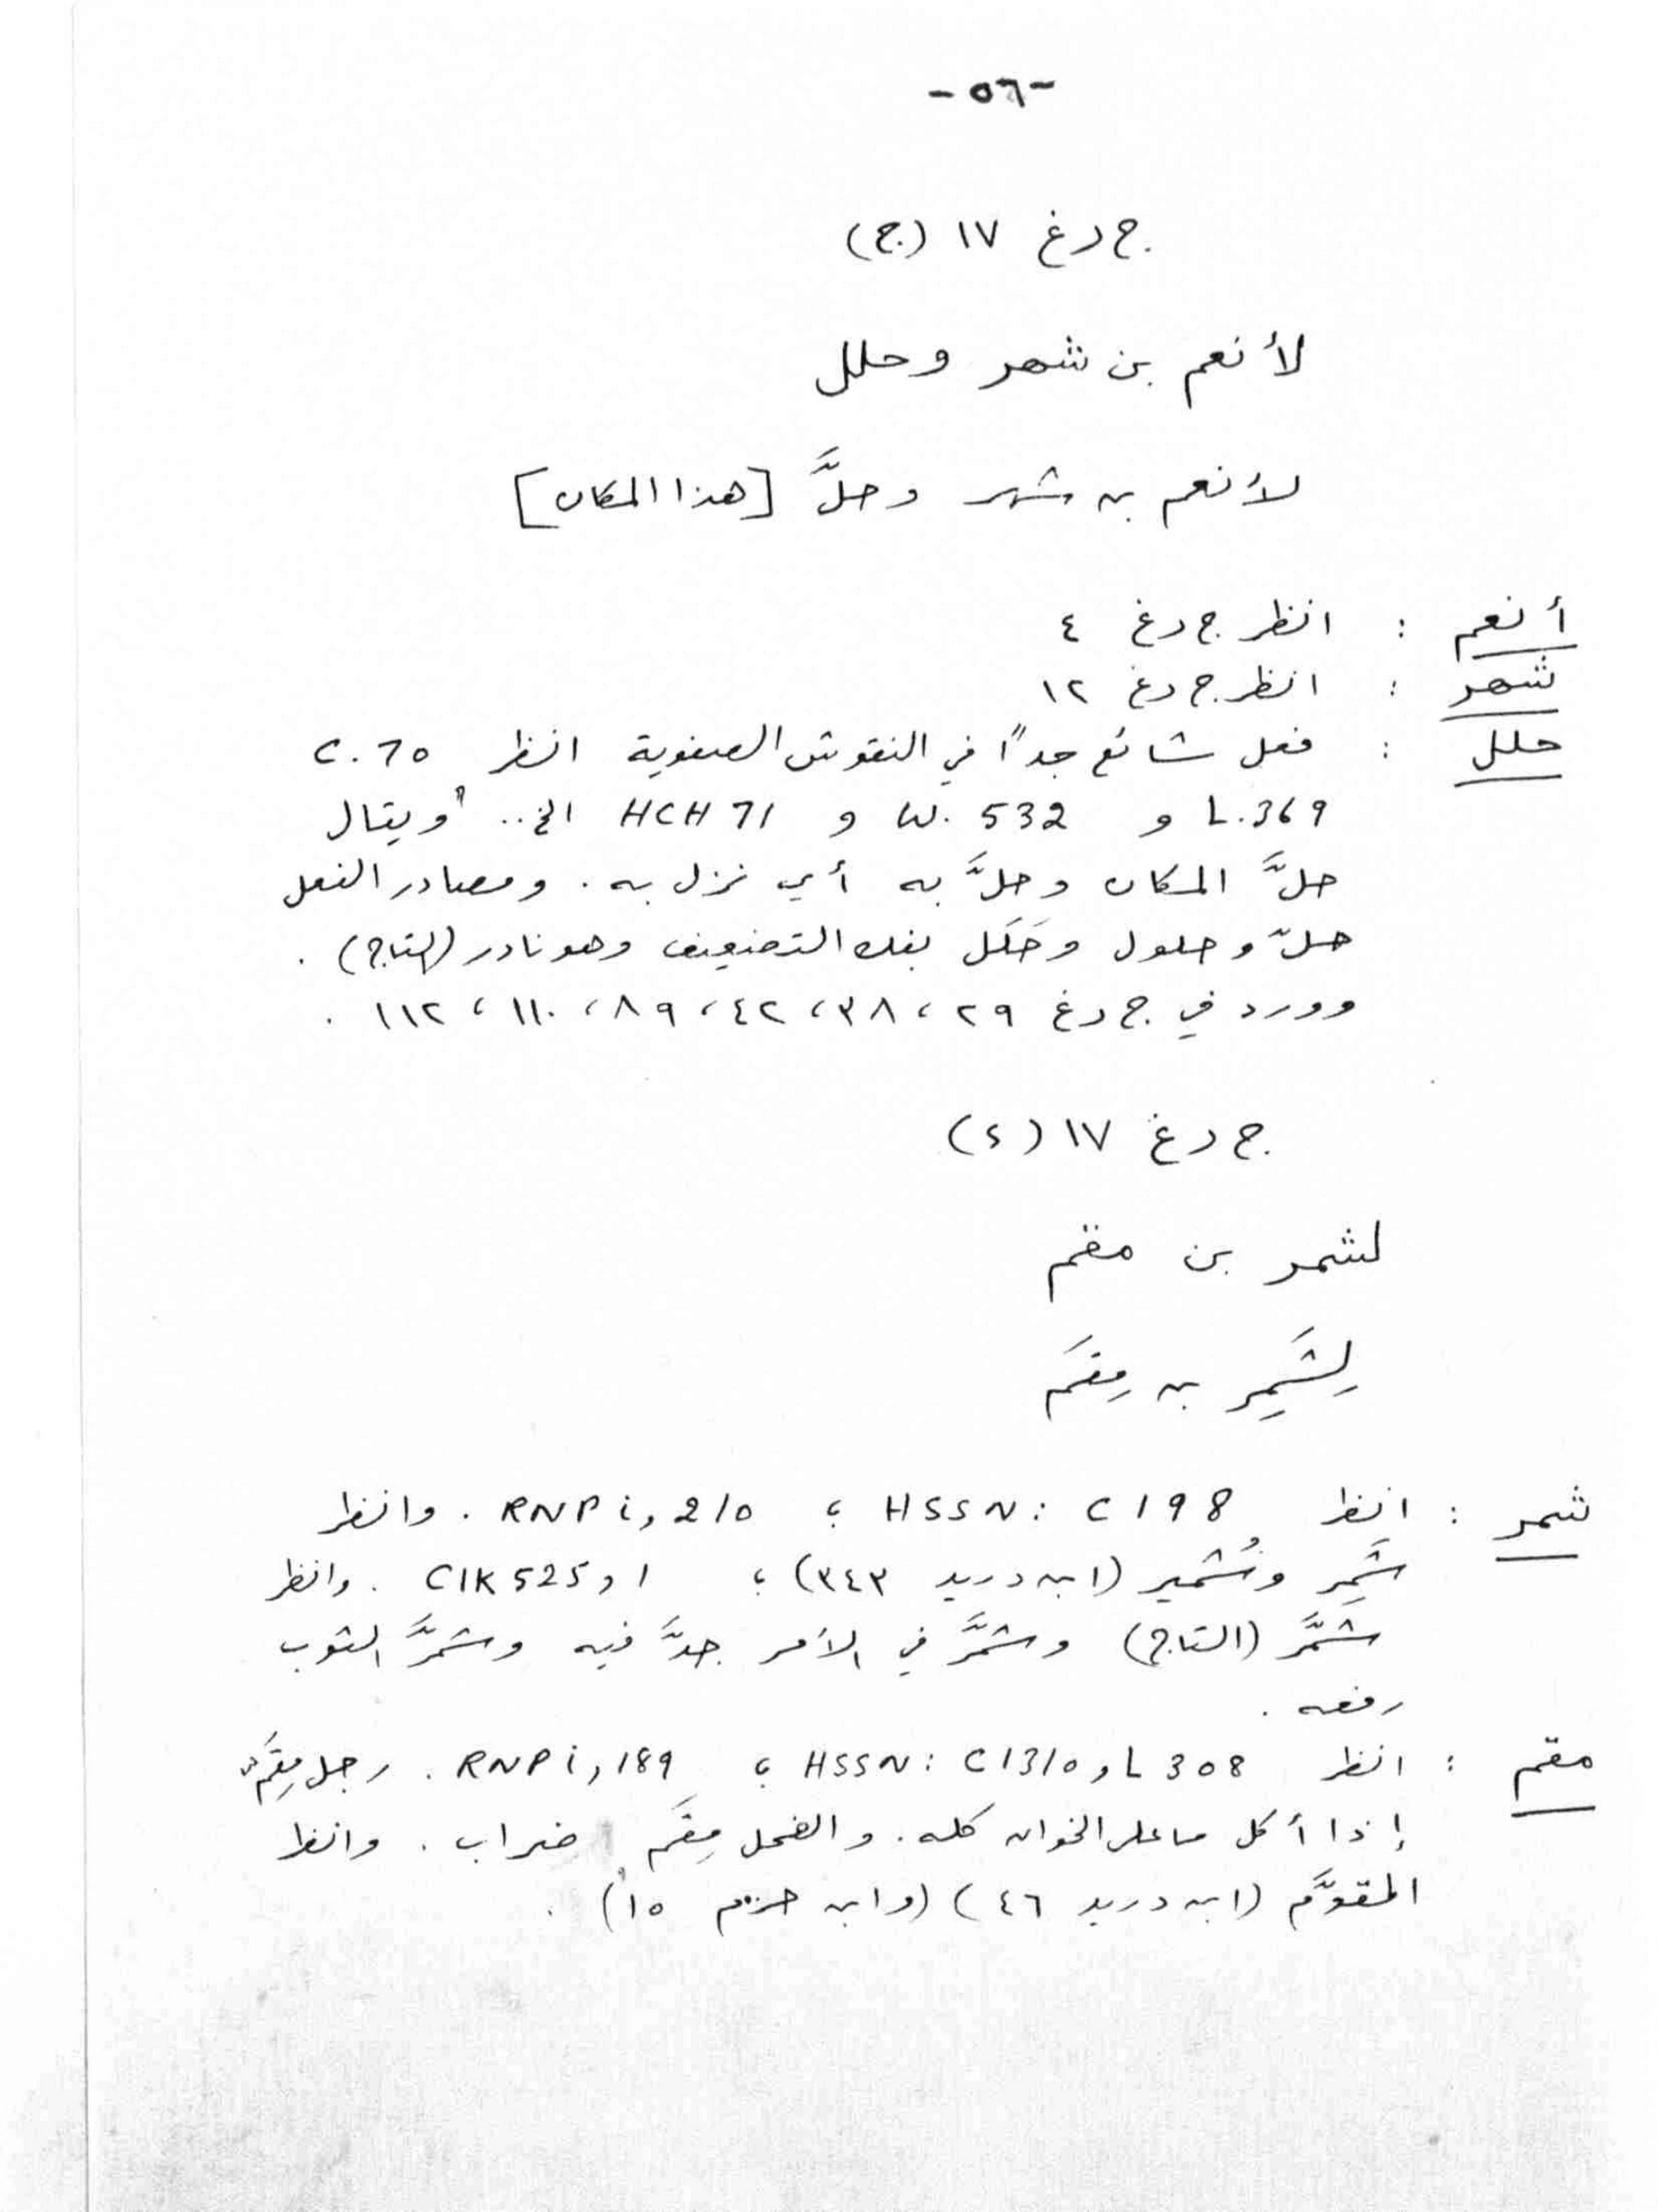 -٥٦-
ج د غ ١٧ (ج)
لأنعم بن شهر وحلل
لأنعم بن شهر وحلَّ [هذا المكان]
أنعم : انظر ج د غ ٤
شهر : انظر ج د غ ١٢
حلل : فعل شائع جداً في النقوش الصفوية انظر C.70
L.369 و W. 532 و HCH 71 الخ.. ويقال
حلَّ المكان وحلَّ به أي نزل به. ومصادر الفعل
حلّ وحلول وحَلَل بفك التضعيف وهو نادر (التاج).
وورد في ج د غ ٢٩، ٣٨، ٤٢، ٨٩، ١١٠، ١١٢.
ج د غ ١٧ (د)
لشمر بن مقم
لِشَمِر بن مِقَم
شمر : انظر HSSN: C198 ؛ RNP i, 210. وانظر
شَمِر وشُمير (ابن دريد ٣٤٣)؛ CIK 525, 1. وانظر
شمَّر (التاج) وشمَّر في الأمر جدَّ فيه وشمَّر الثوب
رفعه.
مقم : انظر HSSN: C1310, L 308 ؛ RNP i, 189. رجل مِقَمّ
إذا أكل ما على الخوان كله. والفحل مِقَم ضراب. وانظر
المقوَّم (ابن دريد ٤٦) (وابن حزم ١٥).